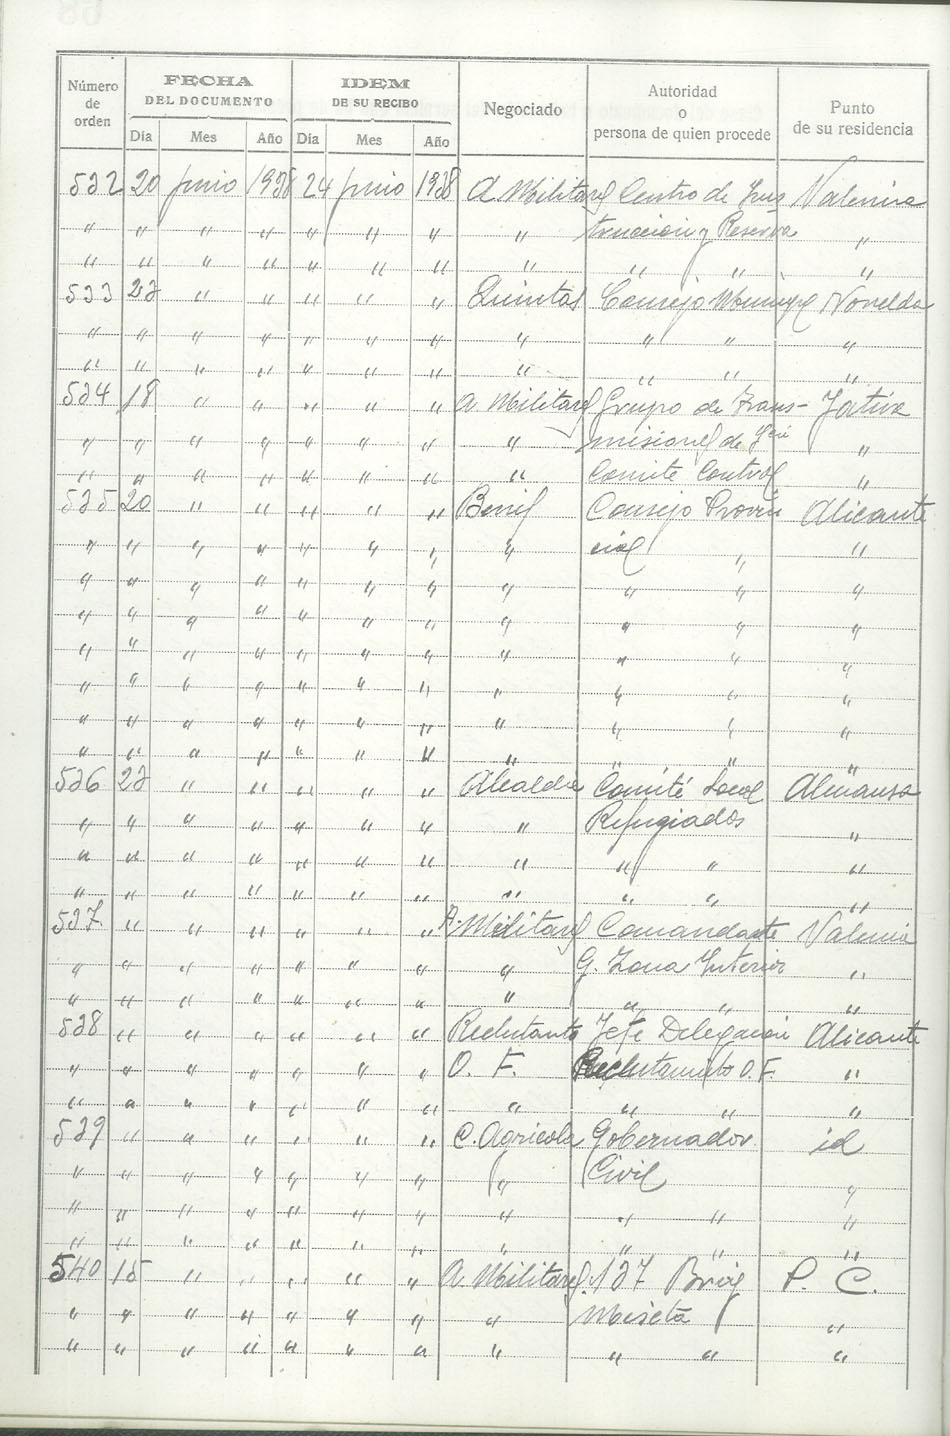 Número de orden | FECHA DEL DOCUMENTO | IDEM DE SU RECIBO | Negociado | Autoridad o persona de quien procede | Punto de su residencia
Día | Mes | Año | Día | Mes | Año
532 20 Junio 1938 24 Junio 1938 A. Militares Centro de Ins Valencia
" " " " " " " " trucción y Reserva "
" " " " " " " " " " "
533 23 " " " " " Quintas Consejo Municipl Novelda
" " " " " " " " " " "
" " " " " " " " " " "
534 18 " " " " " A. Militares Grupo de Trans- Játiva
" " " " " " " " misiones de "
" " " " " " " " Comité Control "
535 20 " " " " " Consejo Provin Alicante
" " " " " " " " cial " "
" " " " " " " " " " "
" " " " " " " " " " "
" " " " " " " " " " "
" " " " " " " " " " "
" " " " " " " " " " "
" " " " " " " " " " "
536 23 " " " " " Alcaldia Comité Local Almansa
" " " " " " " " Refugiados "
" " " " " " " " " " "
" " " " " " " " " " "
537 " " " " " " A. Militares Comandante Valencia
" " " " " " " " G. Zona Interior "
" " " " " " " " " " "
538 " " " " " " Reclutamto Jefe Delegación Alicante
" " " " " " " O. F. Reclutamito O. F. "
" " " " " " " " " " "
539 " " " " " " C. Agricola Gobernador id
" " " " " " " " Civil "
" " " " " " " " " " "
" " " " " " " " " " "
540 15 " " " " " A. Militares 137 Brig P. C.
" " " " " " " " Mixta "
" " " " " " " " " " "